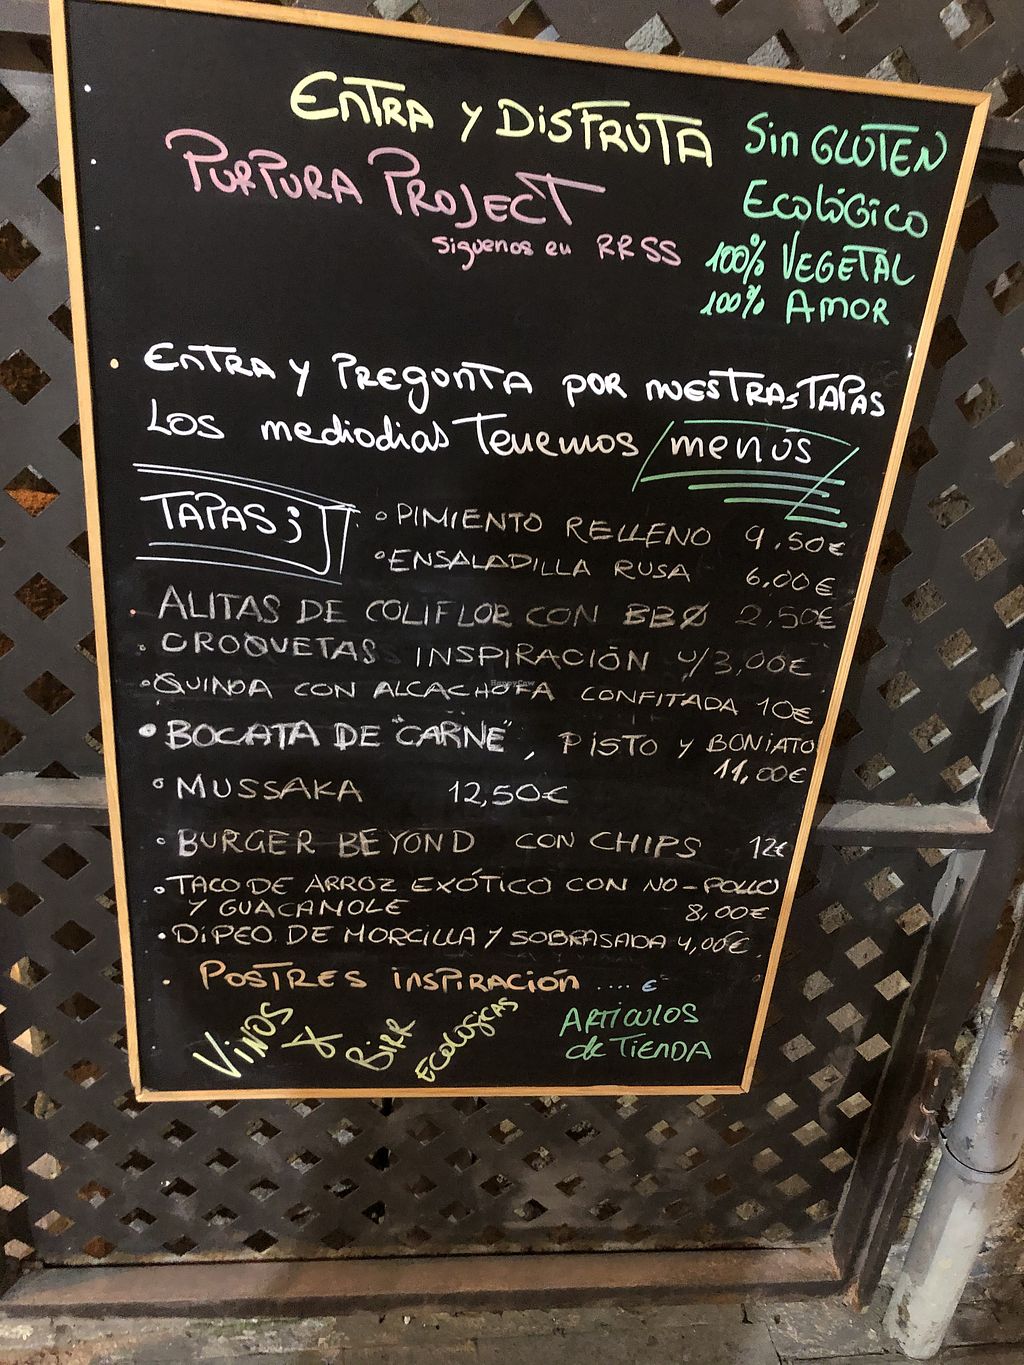 ENTRA Y DISFRUTA
PURPURA PROJECT
Siguenos en RRSS
Sin GLUTEN
EcolóGico
100% VEGETAL
100% AMOR
ENTRA Y PREGUNTA POR NUESTRAS TAPAS
LOS mediodias Tenemos menús
TAPAS ;
PIMIENTO RELLENO 9,50€
ENSALADILLA RUSA 6,00€
ALITAS DE COLIFLOR CON BBQ 2,50€
CROQUETAS INSPIRACIÓN u/3,00€
QUINOA CON ALCACHOFA CONFITADA 10€
BOCATA DE "CARNE", PISTO Y BONIATO
11,00€
MUSSAKA 12,50€
BURGER BEYOND CON CHIPS 12€
TACO DE ARROZ EXÓTICO CON NO-POLLO
Y GUACAMOLE 8,00€
DIPEO DE MORCILLA Y SOBRASADA 4,00€
POSTRES INSPIRACIÓN .... €
VINOS Y BIRR ECOLOGICAS
ARTICULOS
de TIENDA
HappyCow